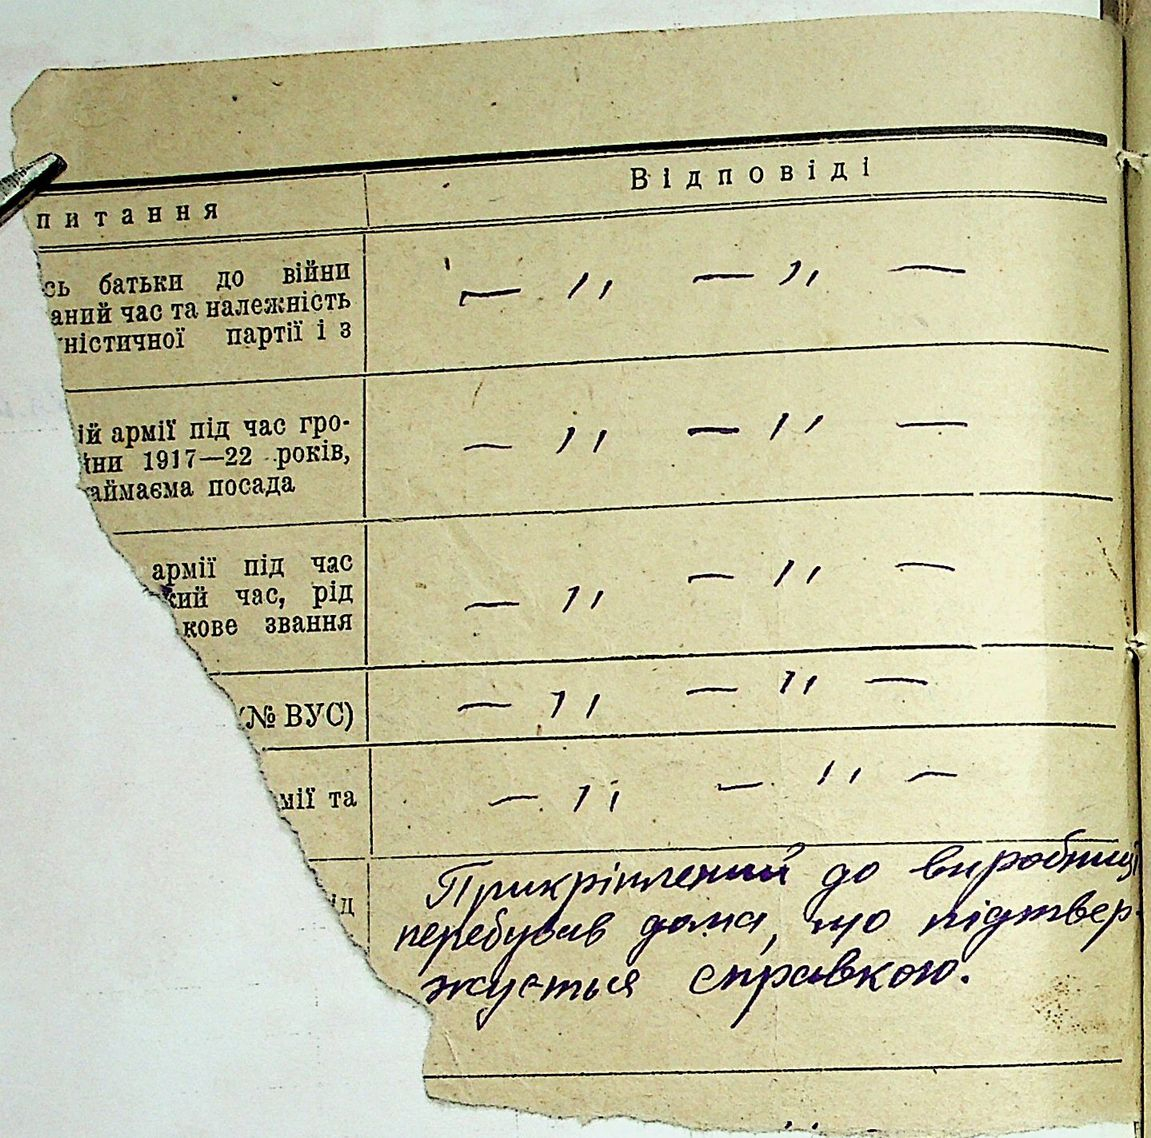 питання Відповіді
сь батьки до війни
аний час та належність
ністичної партії і з
— " — " —
ій армії під час гро-
йни 1917—22 років,
аймаєма посада
— " — " —
армії під час
кий час, рід
кове звання
— " — " —
(№ ВУС)
— " — " —
мії та
— " — " —
ід
Прикріплений до виробниц
перебував дома, що підтвер-
жується справкою.